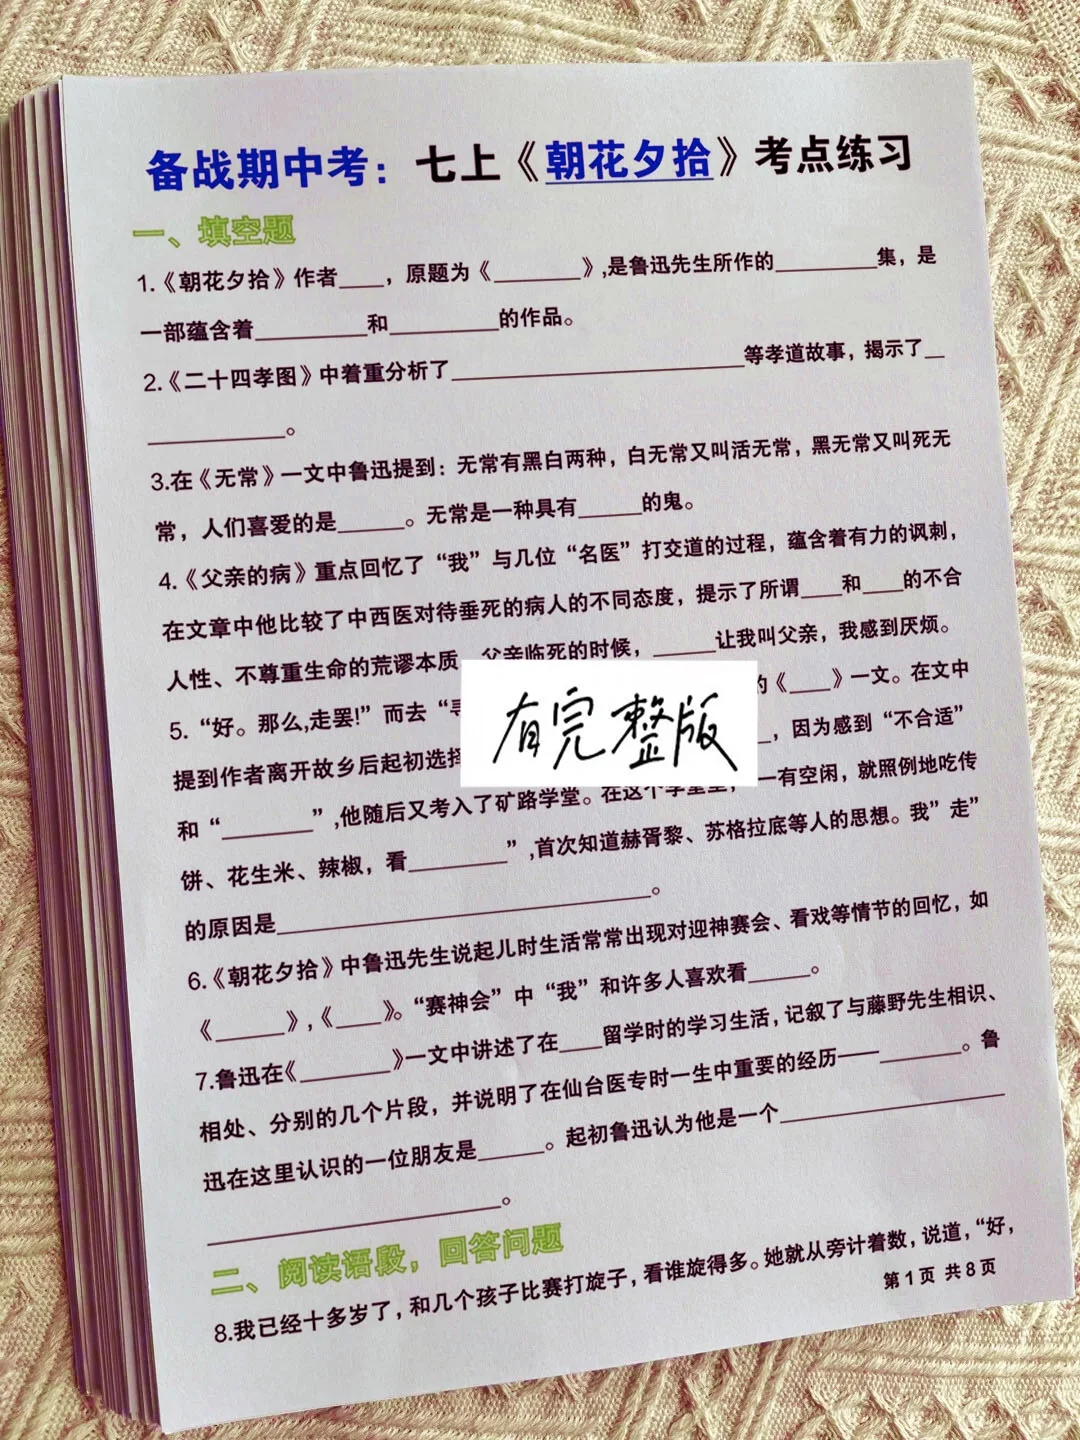 备战期中考：七上《朝花夕拾》考点练习
一、填空题
1.《朝花夕拾》作者____，原题为《________》,是鲁迅先生所作的_________集，是
一部蕴含着__________和__________的作品。
2.《二十四孝图》中着重分析了__________________________等孝道故事，揭示了__
____________。
3.在《无常》一文中鲁迅提到：无常有黑白两种，白无常又叫活无常，黑无常又叫死无
常，人们喜爱的是______。无常是一种具有______的鬼。
4.《父亲的病》重点回忆了“我”与几位“名医”打交道的过程，蕴含着有力的讽刺，
在文章中他比较了中西医对待垂死的病人的不同态度，提示了所谓____和____的不合
人性、不尊重生命的荒谬本质 父亲临死的时候，______让我叫父亲，我感到厌烦。
5.“好。那么,走罢!”而去“ 的《____》一文。在文中
提到作者离开故乡后起初选择 _，因为感到“不合适”
和“________”,他随后又考入了矿路学堂。在这个学堂里， 一有空闲，就照例地吃侉
饼、花生米、辣椒，看_________”,首次知道赫胥黎、苏格拉底等人的思想。我”走”
的原因是__________________________________。
6.《朝花夕拾》中鲁迅先生说起儿时生活常常出现对迎神赛会、看戏等情节的回忆，如
《______》,《____》。“赛神会”中“我”和许多人喜欢看______。
7.鲁迅在《________》一文中讲述了在____留学时的学习生活，记叙了与藤野先生相识、
相处、分别的几个片段，并说明了在仙台医专时一生中重要的经历——_______。鲁
迅在这里认识的一位朋友是______。起初鲁迅认为他是一个____________________
__________________________。
二、阅读语段，回答问题
8.我已经十多岁了，和几个孩子比赛打旋子，看谁旋得多。她就从旁计着数，说道，“好，
第1页 共8页
有完整版